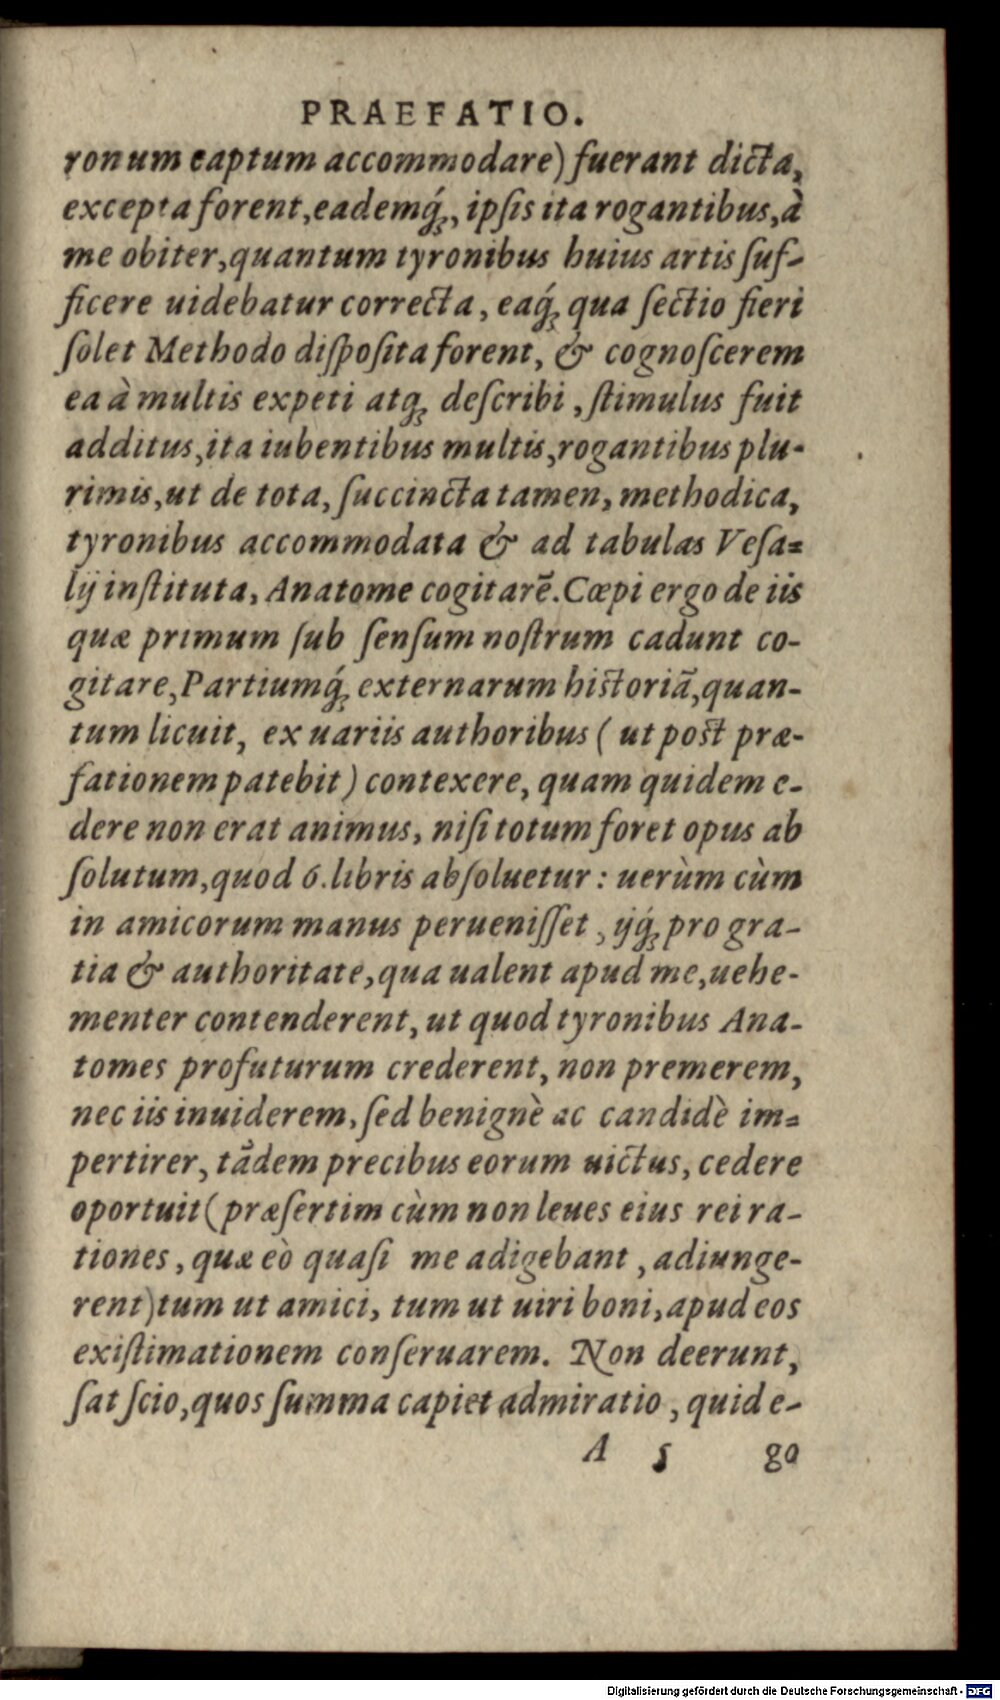 PRAEFATIO.
ronum captum accommodare) fuerant dicta,
excepta forent, eademq́;, ipſis ita rogantibus, à
me obiter, quantum tyronibus huius artis ſuf-
ficere uidebatur correcta, eaq́; qua ſectio fieri
ſolet Methodo diſpoſita forent, & cognoſcerem
ea à multis expeti atq; deſcribi, ſtimulus fuit
additus, ita iubentibus multis, rogantibus plu-
rimis, ut de tota, ſuccincta tamen, methodica,
tyronibus accommodata & ad tabulas Veſa=
lij inſtituta, Anatome cogitarē. Cœpi ergo de iis
quæ primum ſub ſenſum noſtrum cadunt co-
gitare, Partiumq́; externarum hiſtoriā, quan-
tum licuit, ex uariis authoribus ( ut poſt præ-
fationem patebit ) contexere, quam quidem e-
dere non erat animus, niſi totum foret opus ab
ſolutum, quod 6. libris abſoluetur : uerùm cùm
in amicorum manus perueniſſet, ijq́; pro gra-
tia & authoritate, qua ualent apud me, uehe-
menter contenderent, ut quod tyronibus Ana-
tomes profuturum crederent, non premerem,
nec iis inuiderem, ſed benignè ac candidè im=
pertirer, tādem precibus eorum uictus, cedere
oportuit ( præſertim cùm non leues eius rei ra-
tiones, quæ eò quaſi me adigebant, adiunge-
rent) tum ut amici, tum ut uiri boni, apud eos
exiſtimationem conſeruarem. Non deerunt,
ſat ſcio, quos ſumma capiet admiratio, quid e-
A 5 go
Digitalisierung gefördert durch die Deutsche Forschungsgemeinschaft - DFG